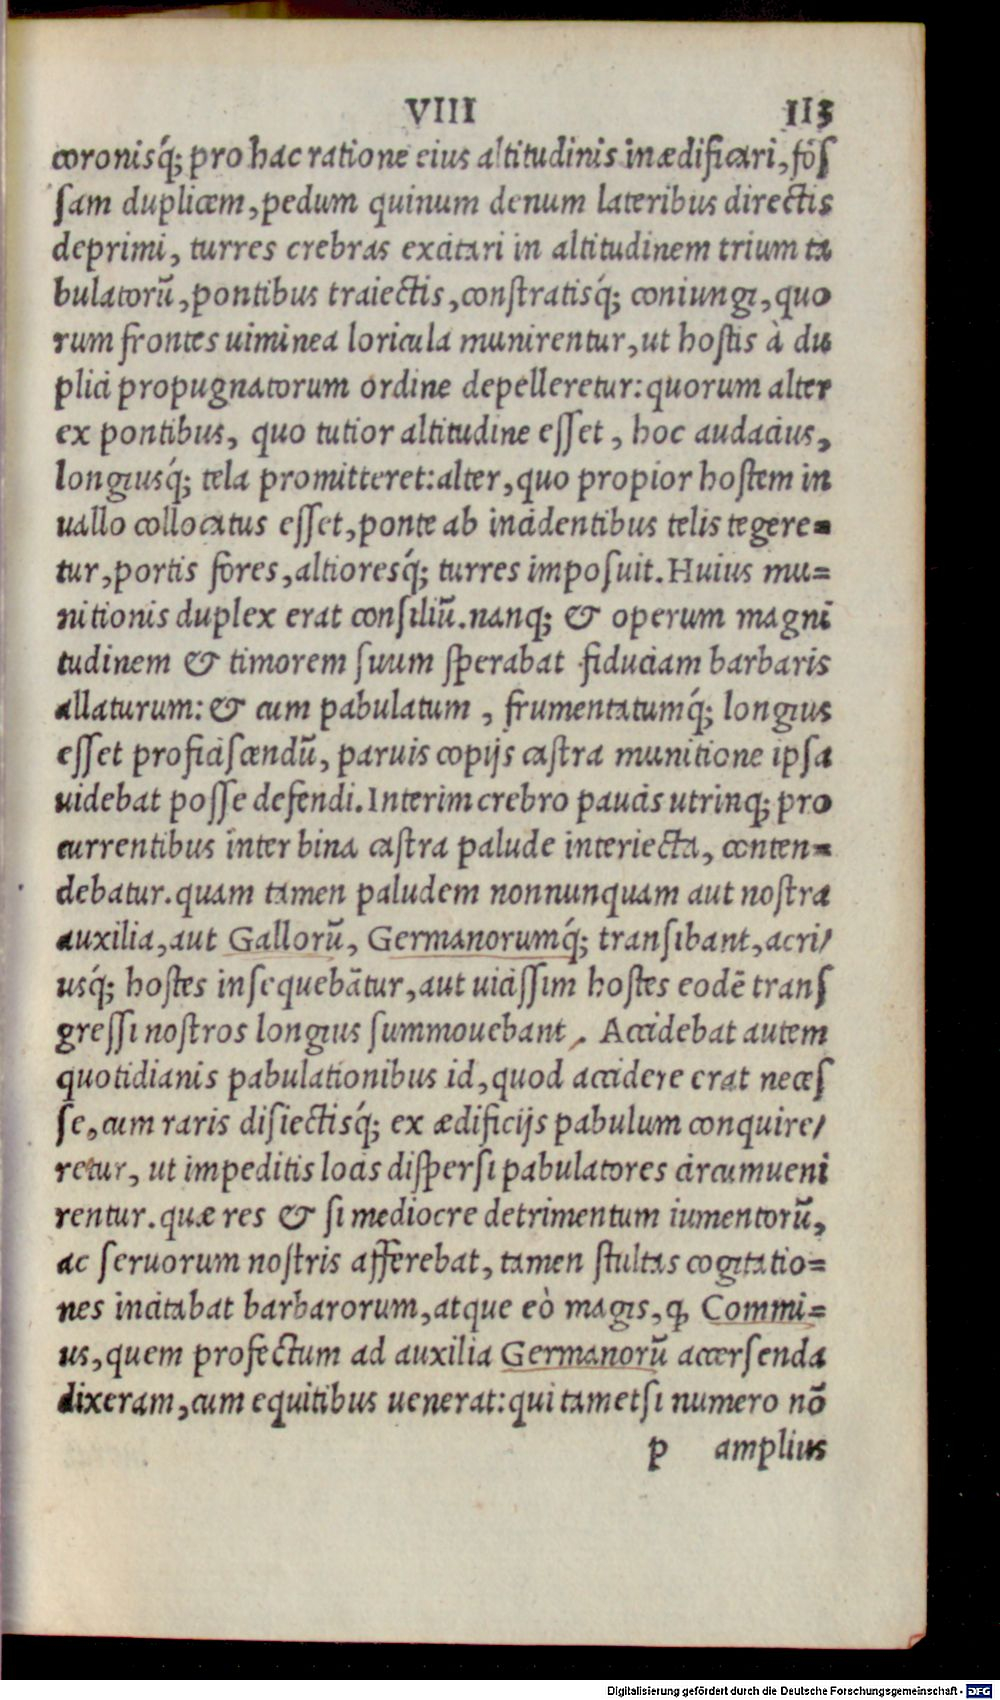 VIII 113
coronisq́; pro hac ratione eius altitudinis inædificari, foſ
ſam duplicem, pedum quinum denum lateribus directis
deprimi, turres crebras excitari in altitudinem trium ta
bulatorũ, pontibus traiectis, conſtratisq́; coniungi, quo
rum frontes uiminea loricula munirentur, ut hoſtis à du
plici propugnatorum ordine depelleretur: quorum alter
ex pontibus, quo tutior altitudine eſſet, hoc audacius,
longiusq́; tela promitteret: alter, quo propior hoſtem in
uallo collocatus eſſet, ponte ab incidentibus telis tegere=
tur, portis fores, altioresq́; turres impoſuit. Huius mu=
nitionis duplex erat conſiliũ. nanq; & operum magni
tudinem & timorem ſuum ſperabat fiduciam barbaris
allaturum: & cum pabulatum, frumentatumq́; longius
eſſet proficiſcendũ, paruis copijs caſtra munitione ipſa
uidebat poſſe defendi. Interim crebro paucis utrinq; pro
currentibus inter bina caſtra palude interiecta, conten=
debatur. quam tamen paludem nonnunquam aut noſtra
auxilia, aut Gallorũ, Germanorumq́; tranſibant, acri/
usq́; hoſtes inſequebãtur, aut uiciſſim hoſtes eodẽ tranſ
greſſi noſtros longius ſummouebant. Accidebat autem
quotidianis pabulationibus id, quod accidere erat neceſ
ſe, cum raris diſiectisq́; ex ædificijs pabulum conquire/
retur, ut impeditis locis diſperſi pabulatores circumueni
rentur. quæ res & ſi mediocre detrimentum iumentorũ,
ac ſeruorum noſtris afferebat, tamen ſtultas cogitatio=
nes incitabat barbarorum, atque eò magis, ꝙ Commi=
us, quem profectum ad auxilia Germanorũ accerſenda
dixeram, cum equitibus uenerat: qui tametſi numero nõ
p amplius
Digitalisierung gefördert durch die Deutsche Forschungsgemeinschaft - DFG